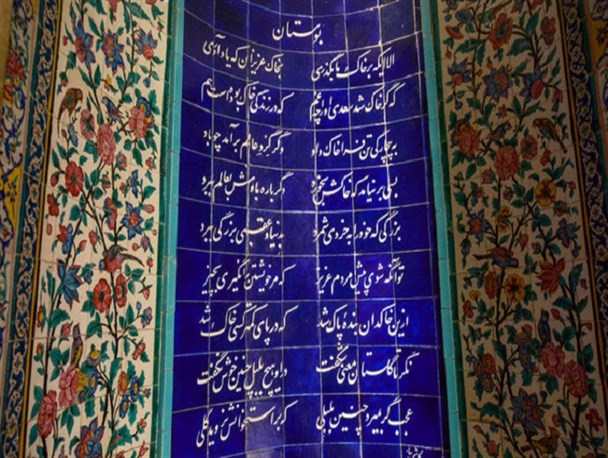 بوستان
الا ایکه بر خاک ما بگذری بخاک عزیزان که یاد آوری
که گر خاک شد سعدی او را چه غم که در زندگی خاک بوده است هم
به بیچارگی تن فرا خاک داد وگر گرد عالم برآمد چو باد
بسی برنیاید که خاکش خورد دگر باره بادش بعالم برد
بزرگی که خود را به خردی شمرد بدنیا و عقبی بزرگی ببرد
تو آنگه شوی پیش مردم عزیز که مر خویشتن را نگیری بچیز
ازین خاکدان بنده پاک شد که در پای کمتر کسی خاک شد
نگر تا گلستان معنی شکفت در او هیچ بلبل چنین خوش نگفت
عجب گر بمیرد چنین بلبلی که بر استخوانش نروید گلی